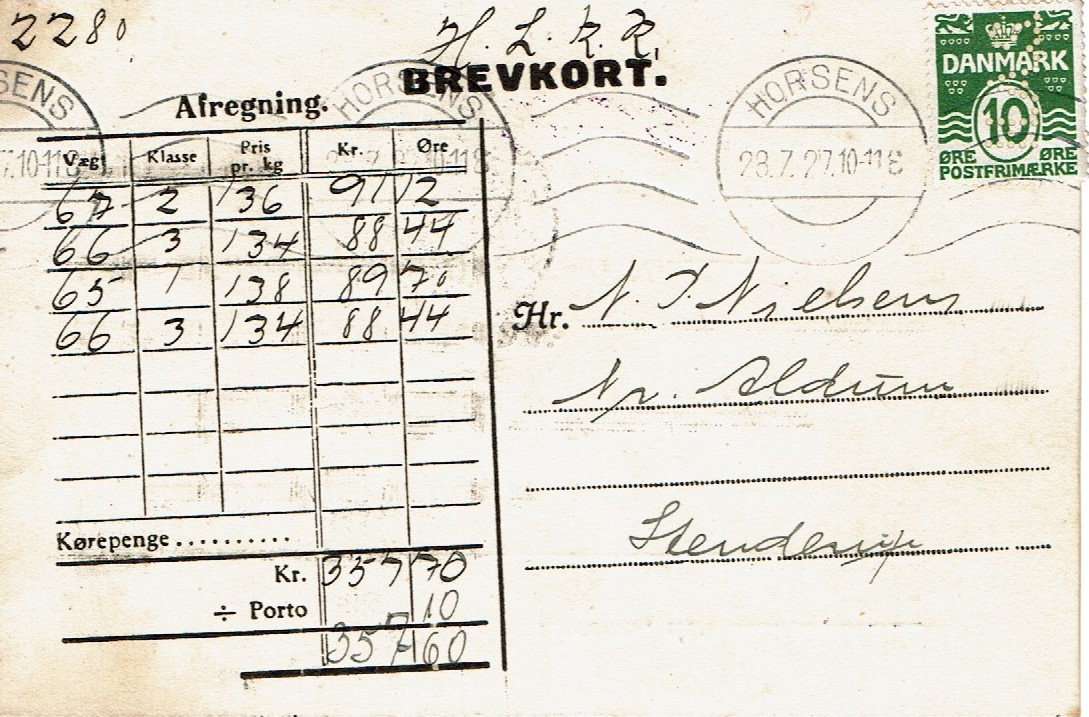 2280
H. L. K. R.
BREVKORT.
DANMARK
10
ØRE ØRE
POSTFRIMÆRKE
SENS
HORSENS
HORSENS
7.10-11
28.7.27.10-11 E
Afregning.
Vægt Klasse Pris pr. kg Kr. Øre
67 2 136 91 12
66 3 134 88 44
65 1 138 89 70
66 3 134 88 44
Kørepenge ..........
Kr. 357 70
÷ Porto 10
357 60
Hr. N. J Nielsen
Nr. Aldum
Stenderup